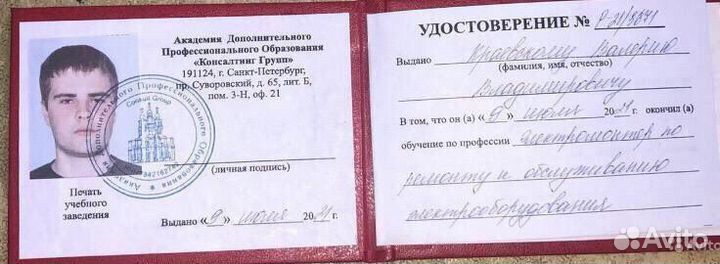 Академия Дополнительного
Профессионального Образования
«Консалтинг Групп»
191124, г. Санкт-Петербург,
пр. Суворовский, д. 65, лит. Б,
пом. 3-Н, оф. 21
Дополнительного Профессионального Образования
Consult Group
(личная подпись)
Печать
учебного
заведения
Выдано «9» июля 2021 г.
УДОСТОВЕРЕНИЕ №
Выдано Краевскому Валерию
(фамилия, имя, отчество)
Владимировичу
В том, что он (а) «9» июль 2021 окончил (а)
обучение по профессии Электромонтер по
ремонту и обслуживанию
электрооборудования
Avito